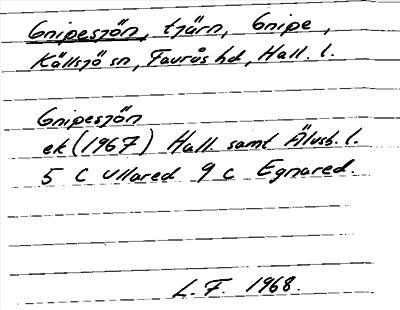 Gnipesjön, tjärn, Gnipe,
Källsjö sn, Faurås hd, Hall. l.
Gnipesjön
ek (1967) Hall. samt Älvsb. l.
5 C Ullared 9 c Egnared.
L. F. 1968.